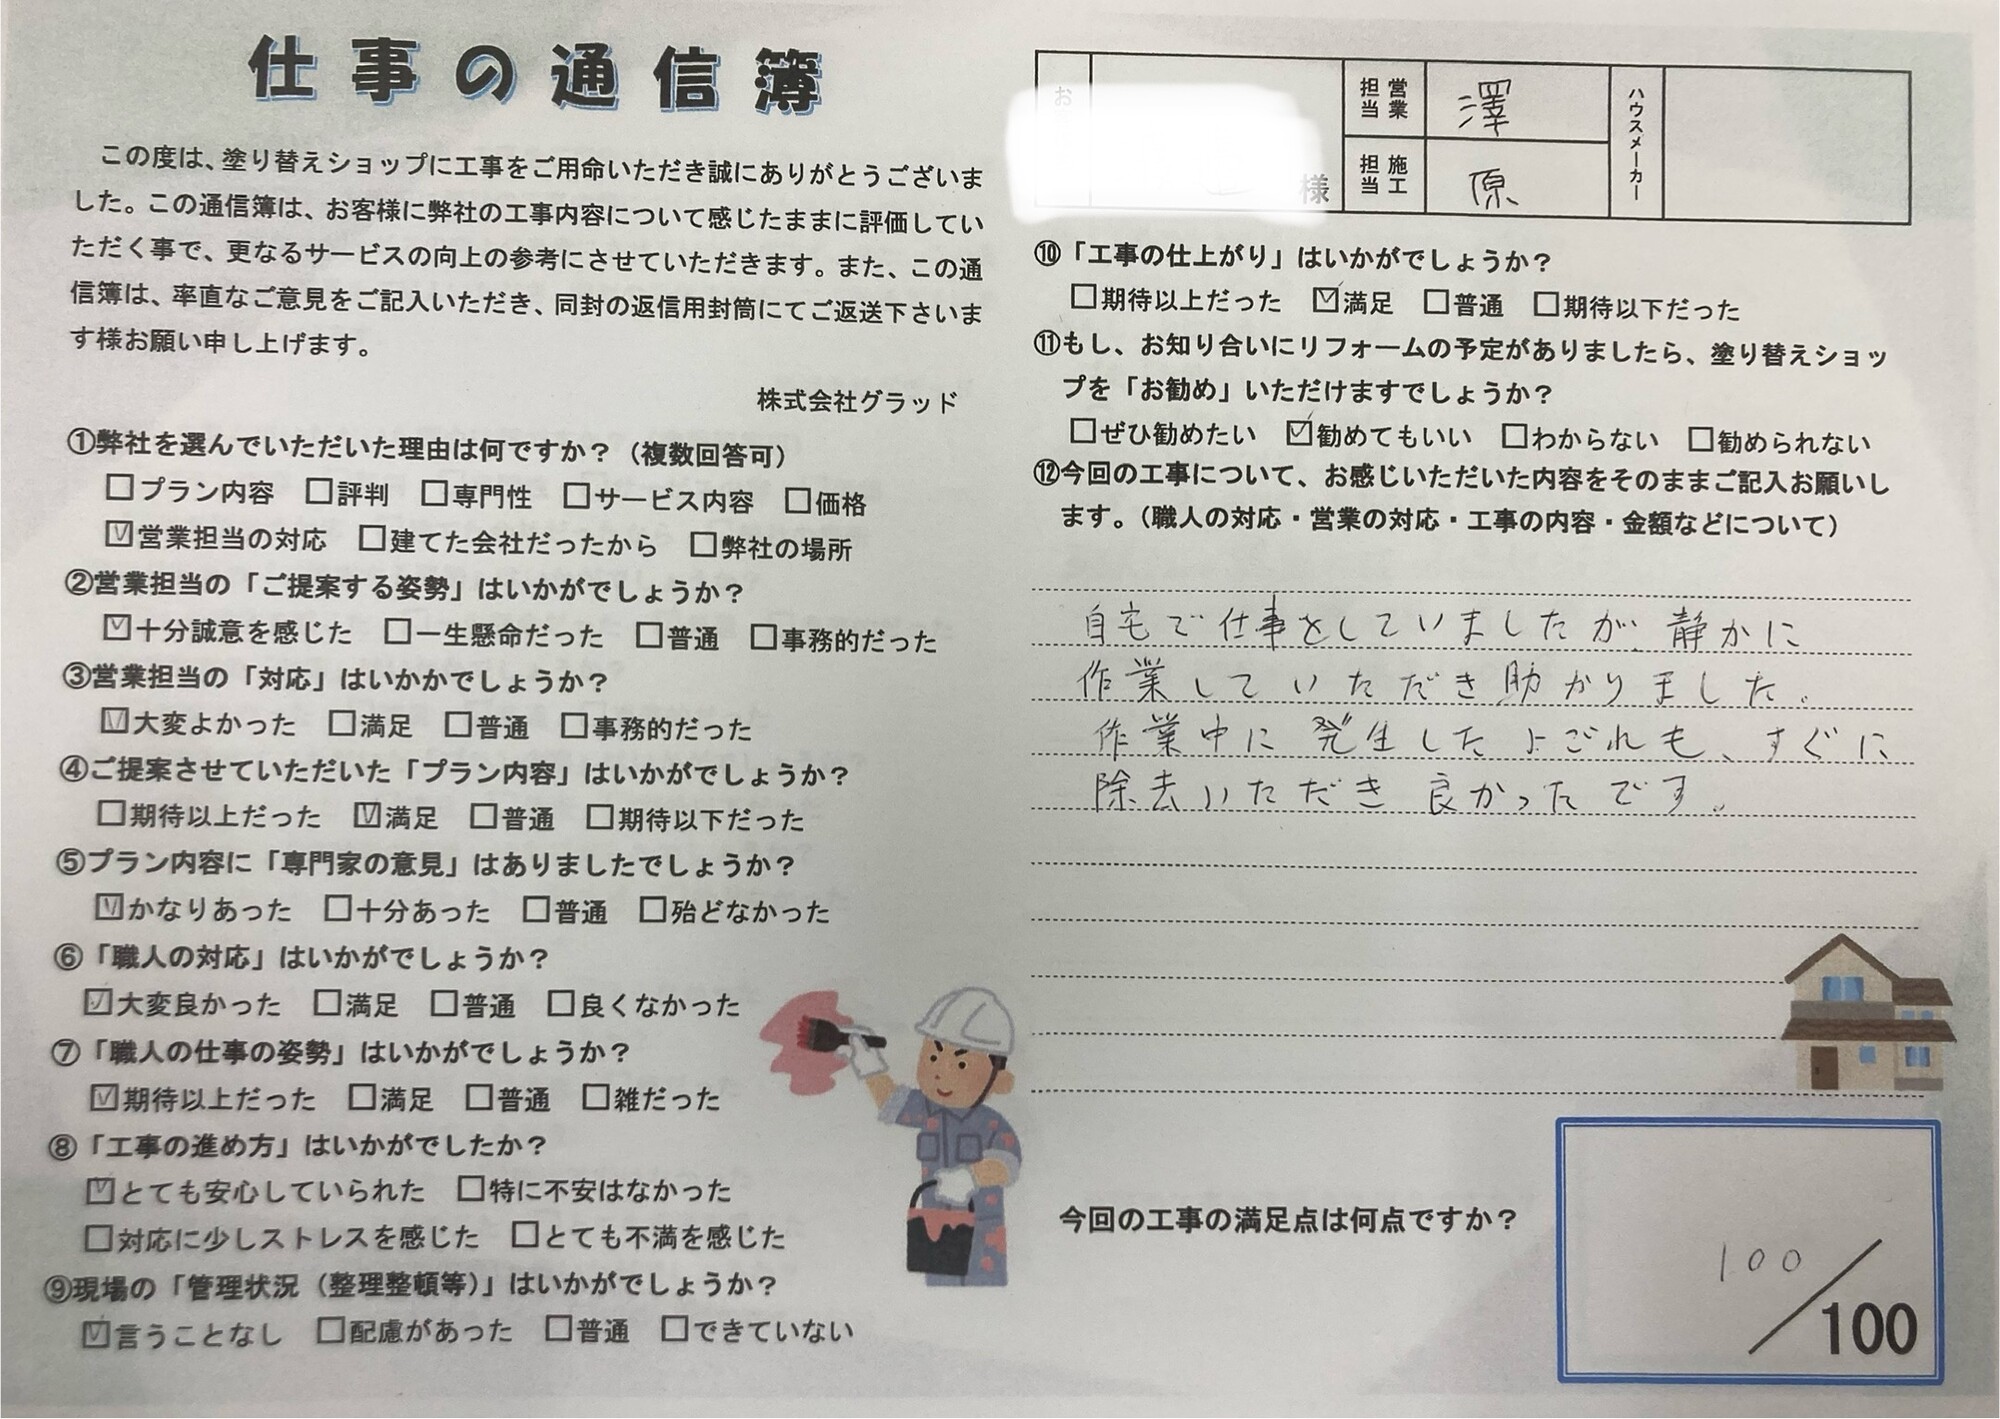 仕事の通信簿
この度は、塗り替えショップに工事をご用命いただき誠にありがとうございま
した。この通信簿は、お客様に弊社の工事内容について感じたままに評価してい
ただく事で、更なるサービスの向上の参考にさせていただきます。また、この通
信簿は、率直なご意見をご記入いただき、同封の返信用封筒にてご返送下さいま
す様お願い申し上げます。
株式会社グラッド
①弊社を選んでいただいた理由は何ですか？（複数回答可）
□プラン内容 □評判 □専門性 □サービス内容 □価格
☑営業担当の対応 □建てた会社だったから □弊社の場所
②営業担当の「ご提案する姿勢」はいかがでしょうか？
☑十分誠意を感じた □一生懸命だった □普通 □事務的だった
③営業担当の「対応」はいかかでしょうか？
☑大変よかった □満足 □普通 □事務的だった
④ご提案させていただいた「プラン内容」はいかがでしょうか？
□期待以上だった ☑満足 □普通 □期待以下だった
⑤プラン内容に「専門家の意見」はありましたでしょうか？
☑かなりあった □十分あった □普通 □殆どなかった
⑥「職人の対応」はいかがでしょうか？
☑大変良かった □満足 □普通 □良くなかった
⑦「職人の仕事の姿勢」はいかがでしょうか？
☑期待以上だった □満足 □普通 □雑だった
⑧「工事の進め方」はいかがでしたか？
☑とても安心していられた □特に不安はなかった
□対応に少しストレスを感じた □とても不満を感じた
⑨現場の「管理状況（整理整頓等）」はいかがでしょうか？
☑言うことなし □配慮があった □普通 □できていない
お
様
営業担当 澤
施工担当 原
ハウスメーカー
⑩「工事の仕上がり」はいかがでしょうか？
□期待以上だった ☑満足 □普通 □期待以下だった
⑪もし、お知り合いにリフォームの予定がありましたら、塗り替えショッ
プを「お勧め」いただけますでしょうか？
□ぜひ勧めたい ☑勧めてもいい □わからない □勧められない
⑫今回の工事について、お感じいただいた内容をそのままご記入お願いし
ます。（職人の対応・営業の対応・工事の内容・金額などについて）
自宅で仕事をしていましたが、静かに
作業していただき助かりました。
作業中に発生したよごれも、すぐに
除去いただき良かったです。
今回の工事の満足点は何点ですか？
100／100